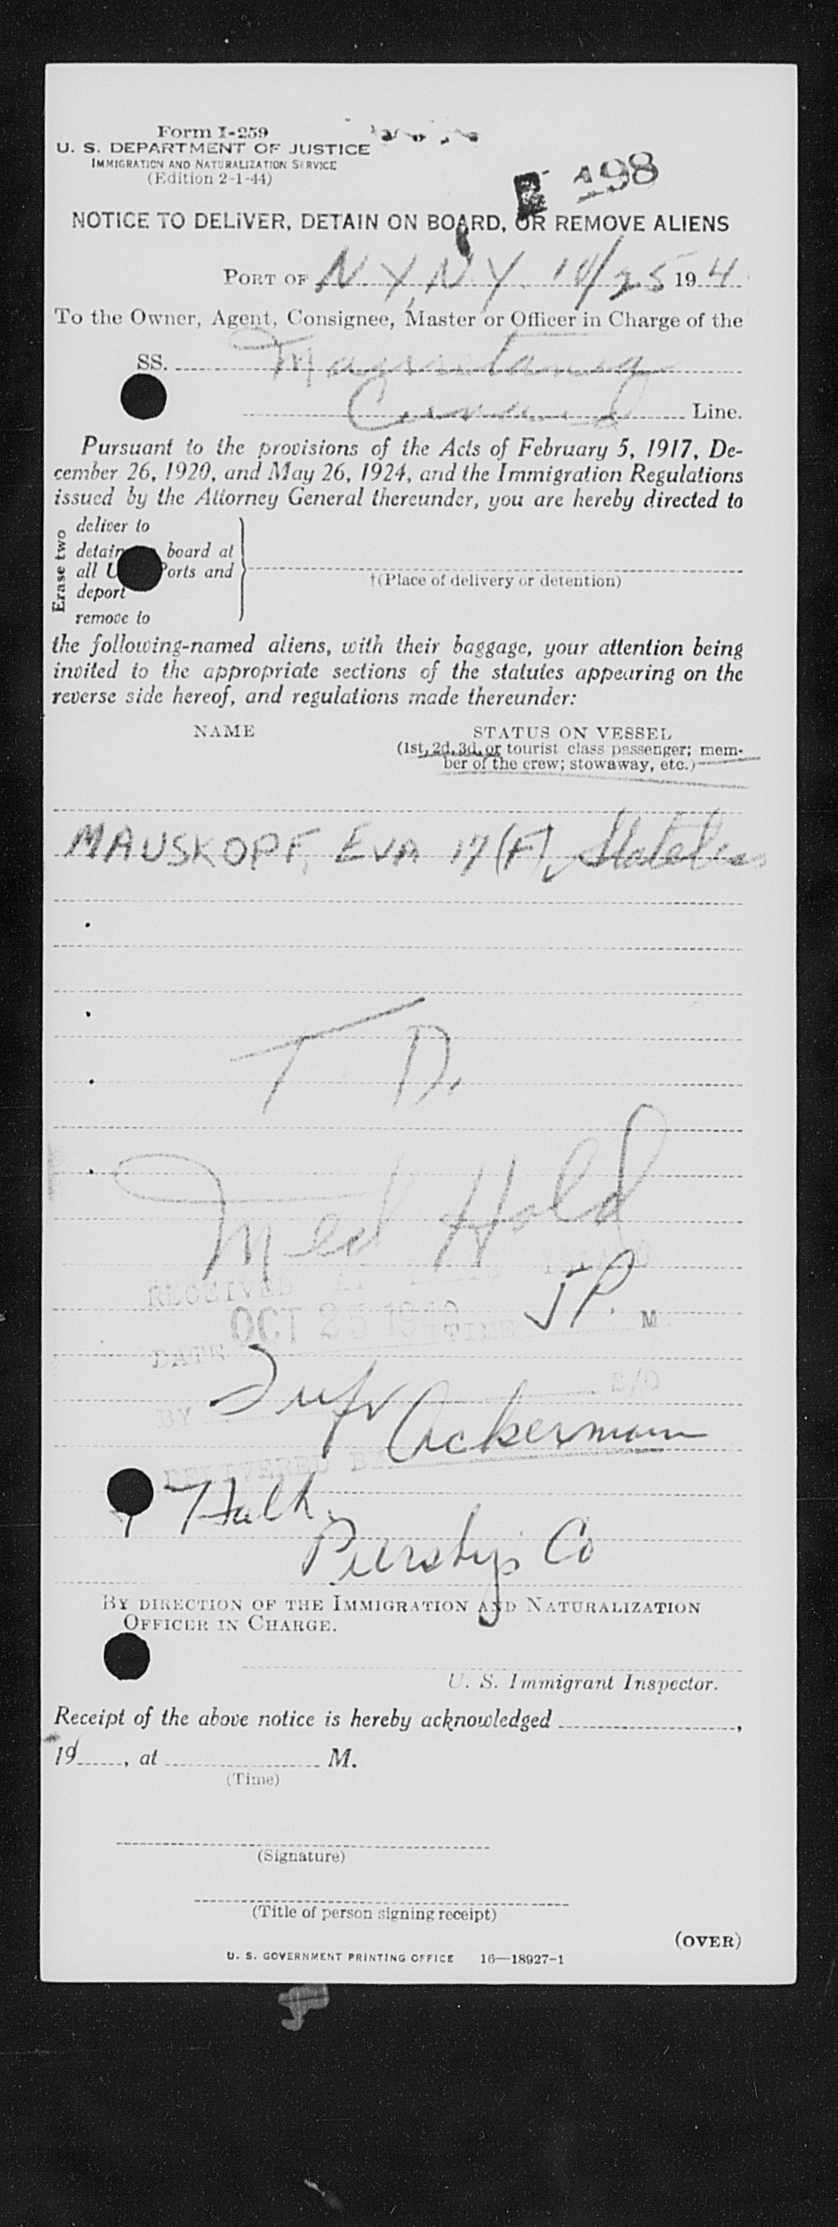 Form I-259
U. S. DEPARTMENT OF JUSTICE
IMMIGRATION AND NATURALIZATION SERVICE
(Edition 2-1-44)
A98
NOTICE TO DELIVER, DETAIN ON BOARD, OR REMOVE ALIENS
PORT OF N.Y, N.Y. 10/25 19 4
To the Owner, Agent, Consignee, Master or Officer in Charge of the
SS.
Cunard Line.
Pursuant to the provisions of the Acts of February 5, 1917, De-
cember 26, 1920, and May 26, 1924, and the Immigration Regulations
issued by the Attorney General thereunder, you are hereby directed to
Erase two
deliver to
detain board at
all orts and
deport
remove to
†(Place of delivery or detention)
the following-named aliens, with their baggage, your attention being
invited to the appropriate sections of the statutes appearing on the
reverse side hereof, and regulations made thereunder:
NAME STATUS ON VESSEL
(1st, 2d, 3d, or tourist class passenger; mem-
ber of the crew; stowaway, etc.)
MAUSKOPF, EVA 17 (F), Stateless
T D.
Med Hold
RECEIVED AT
J P. M
OCT 25 194
DATE TIME
BY
Ackermann
DELIVERED B
Hlth.
Co
BY DIRECTION OF THE IMMIGRATION AND NATURALIZATION
OFFICER IN CHARGE.
U. S. Immigrant Inspector.
Receipt of the above notice is hereby acknowledged ,
19 , at M.
(Time)
(Signature)
(Title of person signing receipt)
(OVER)
U. S. GOVERNMENT PRINTING OFFICE 16—18927-1